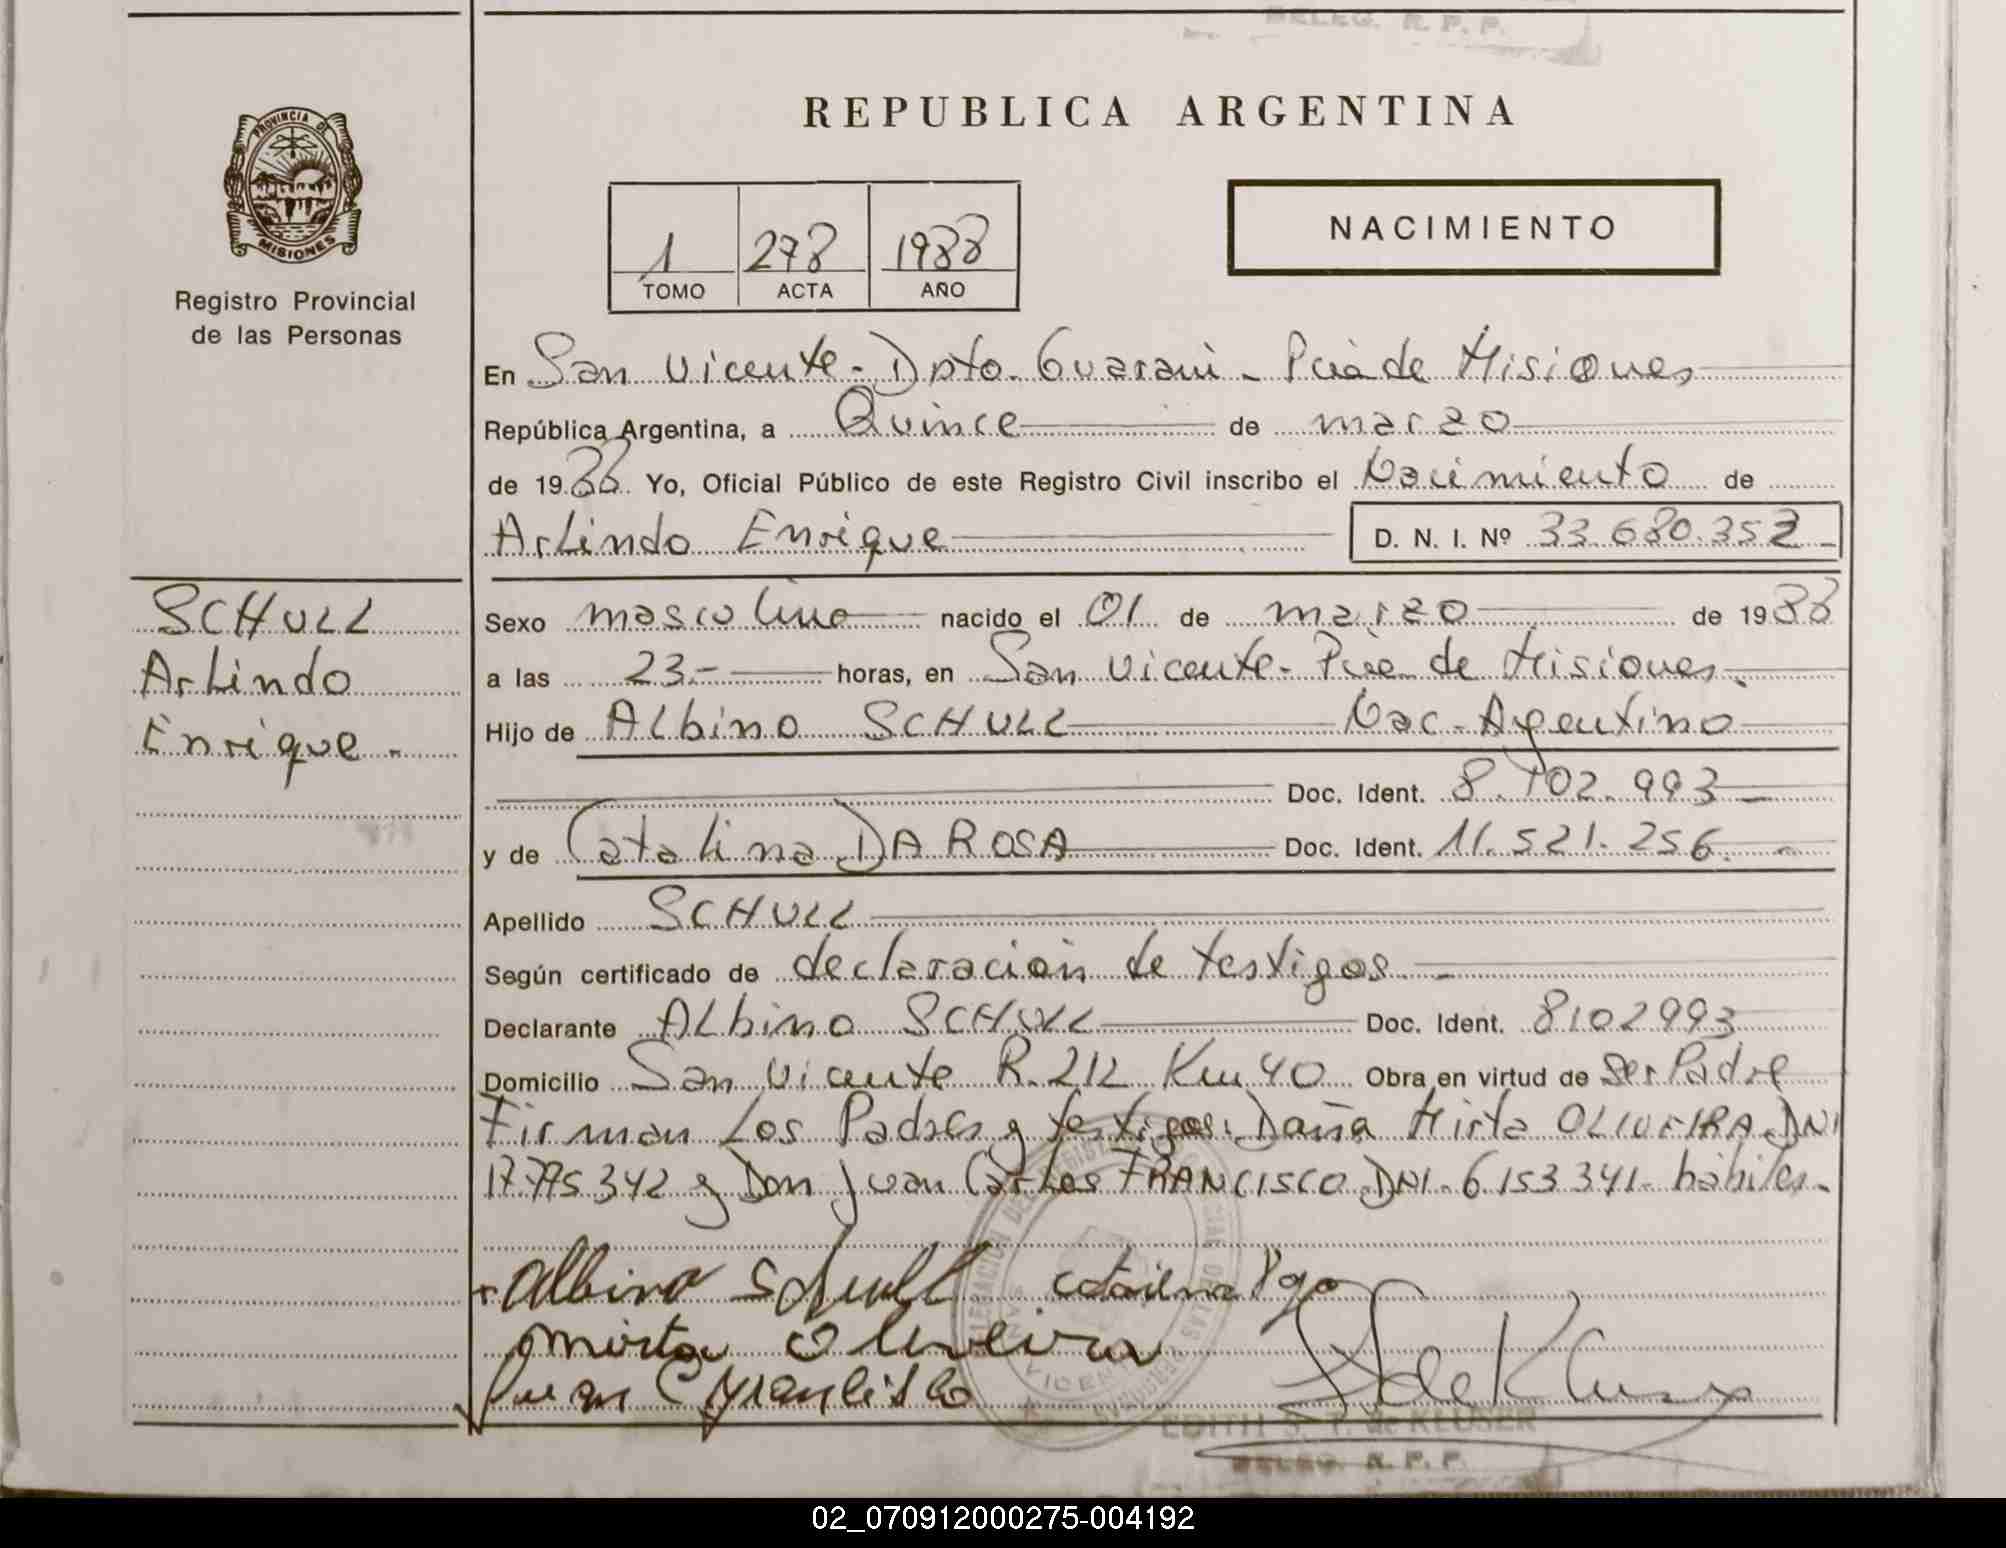 DELEG. R. P. P.
REPUBLICA ARGENTINA
PROVINCIA DE
MISIONES
Registro Provincial
de las Personas
NACIMIENTO
1 278 1988
TOMO ACTA AÑO
En San Vicente - Dpto. Guaraní - Pcia de Misiones
República Argentina, a Quince de marzo
de 1988 Yo, Oficial Público de este Registro Civil inscribo el Nacimiento de
Arlindo Enrique D. N. I. Nº 33.680.352 -
SCHULL
Arlindo
Enrique -
Sexo masculino nacido el 01 de marzo de 1988
a las 23- horas, en San Vicente - Pcia de Misiones.
Hijo de Albino SCHULL Nac - Argentino
Doc. Ident. 8.102.993 -
y de Catalina DA ROSA Doc. Ident. 11.521.256.
Apellido SCHULL
Según certificado de declaración de testigos -
Declarante Albino SCHULL Doc. Ident. 8102993
Domicilio San Vicente R. 212 Km 40 Obra en virtud de Ser Padre
Firman Los Padres y testigos: Doña Mirta OLIVEIRA DNI
17.775342 y Don Juan Carlos FRANCISCO DNI - 6153341 - hábiles.
Albino Schull
Mirta Oliveira
Juan C Francisco
EDITH S. T. de KLUSER
DELEG. R. P. P.
02_070912000275-004192